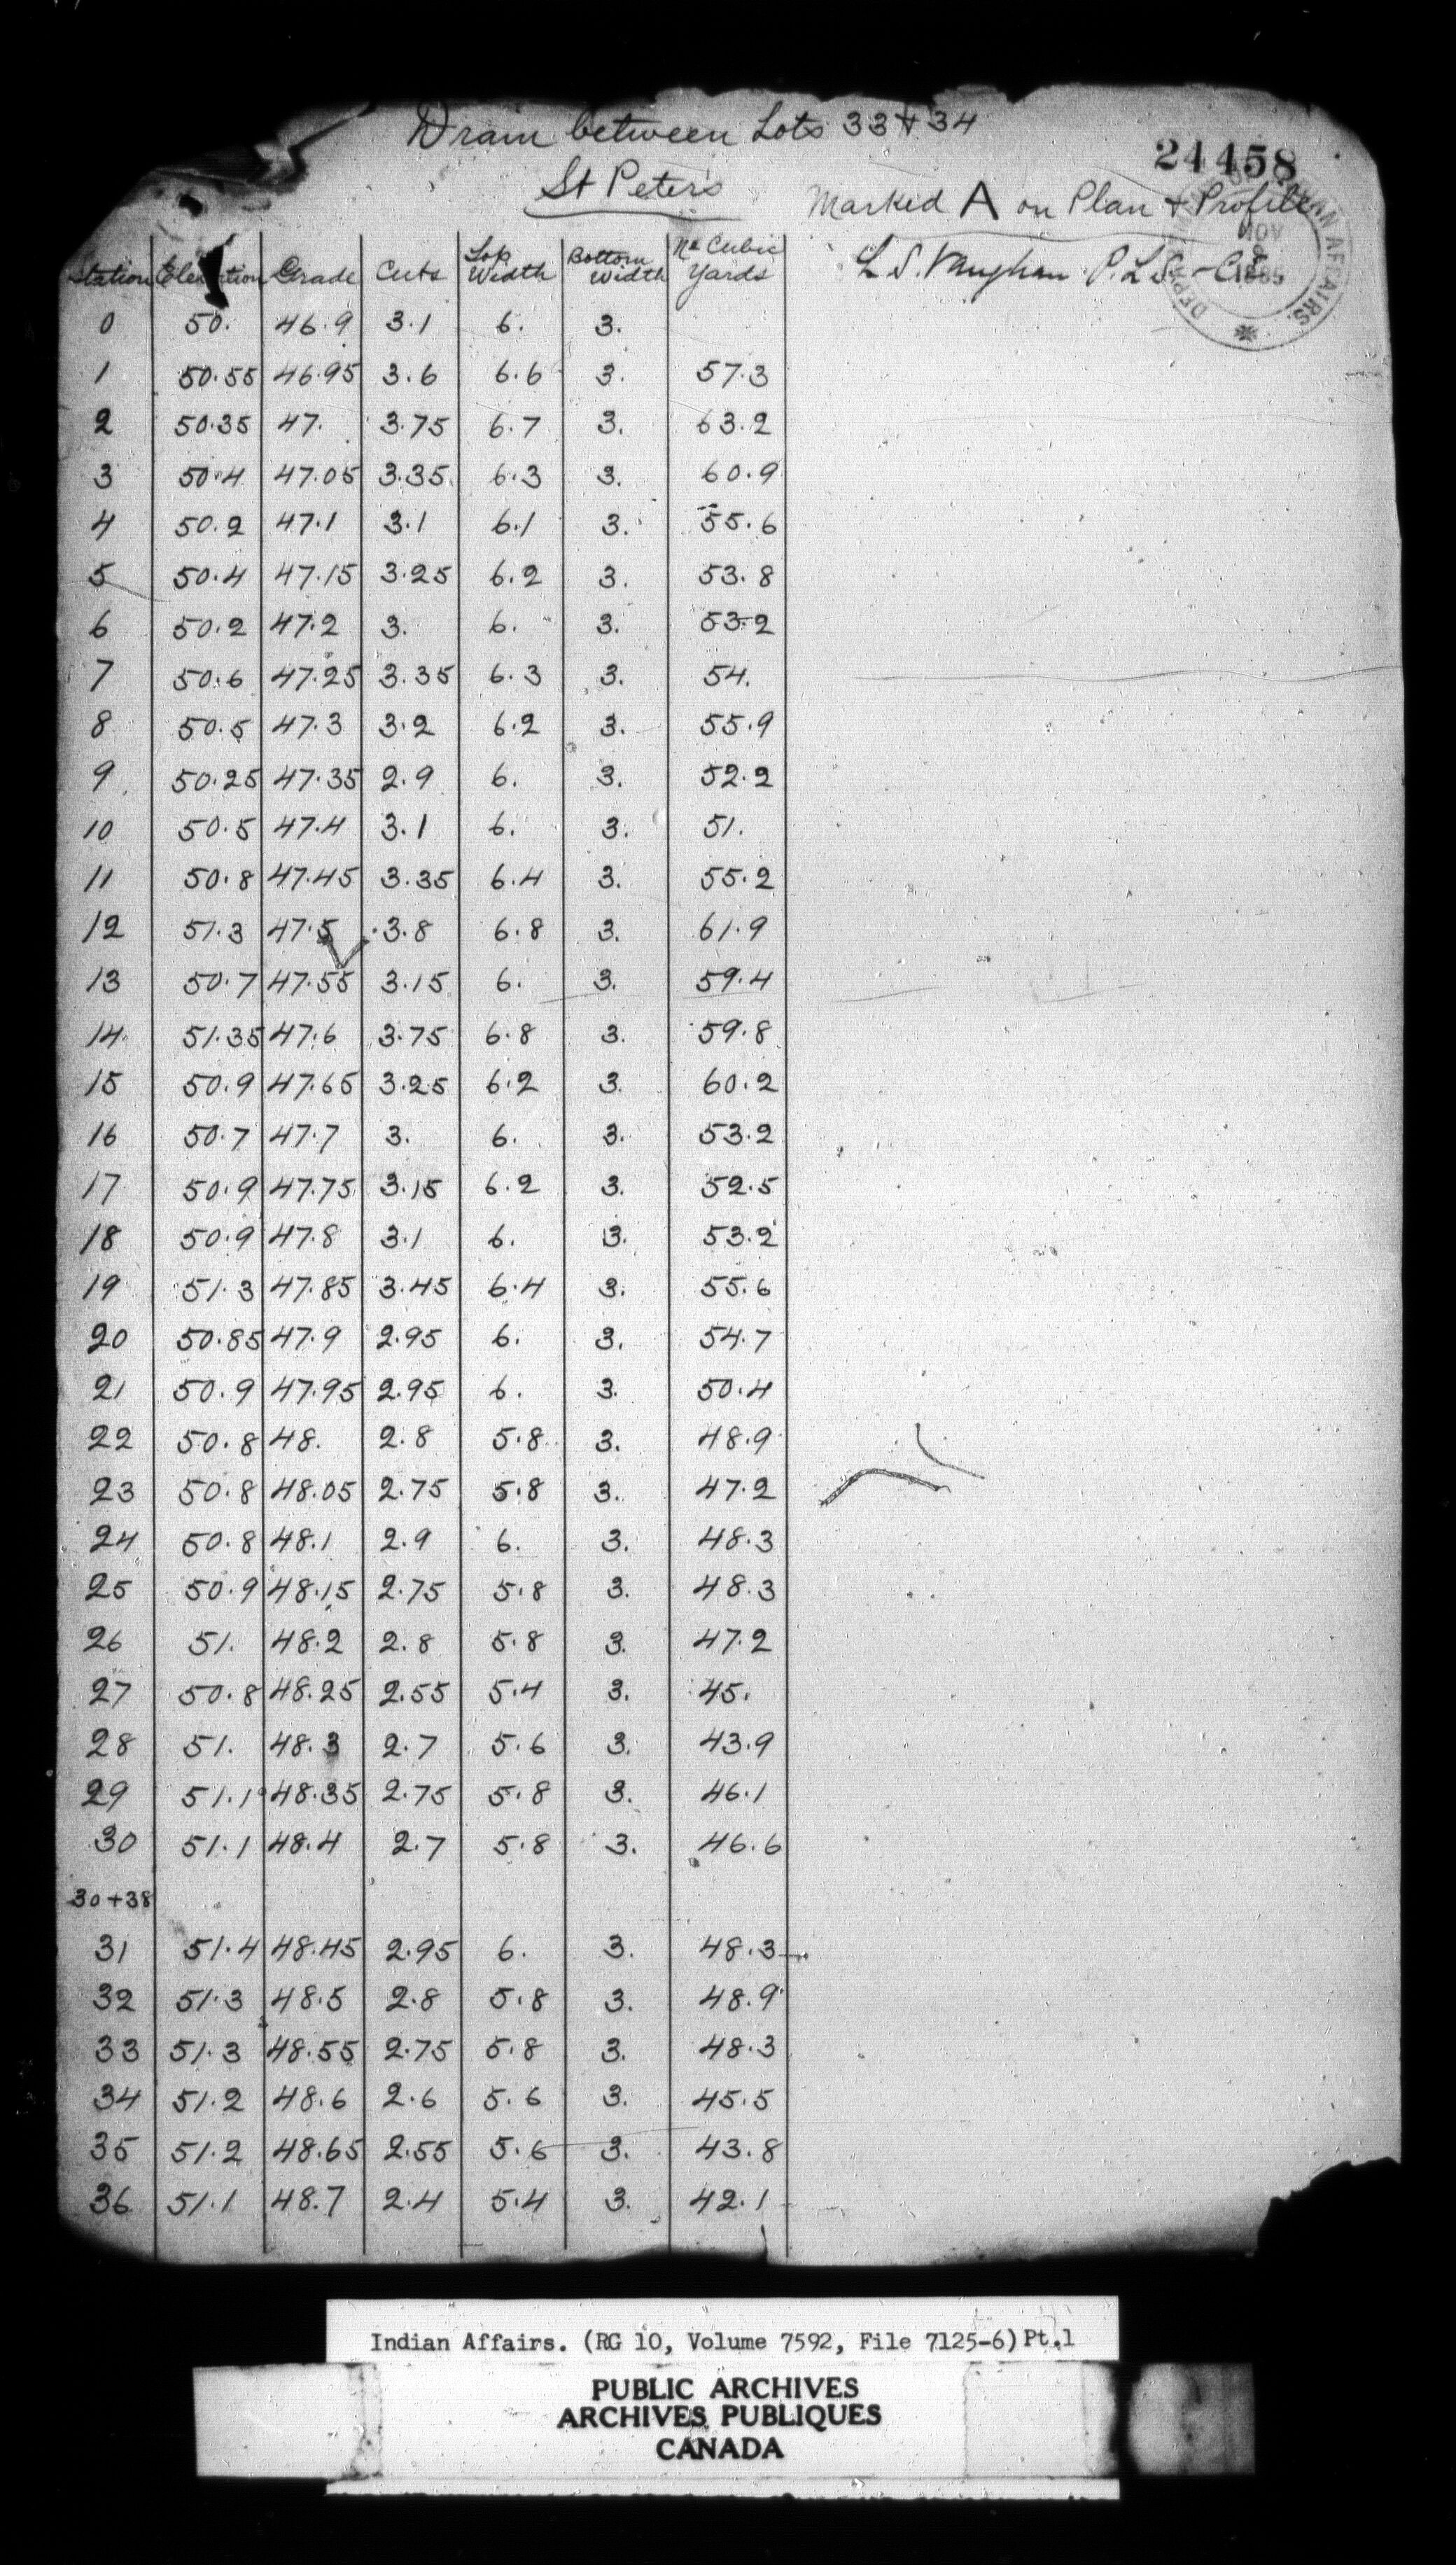 Drain between Lots 33 + 34
24458
St Peters
Marked A on Plan + Profile
L. S. Vaughan P.L.S. - C.E.
DEPT INDIAN AFFAIRS.
NOV
1885
Station Elevation Grade Cuts Top Width Bottom Width No Cubic Yards
0 50. 46.9 3.1 6. 3.
1 50.55 46.95 3.6 6.6 3. 57.3
2 50.35 47. 3.75 6.7 3. 63.2
3 50.4 47.05 3.35 6.3 3. 60.9
4 50.2 47.1 3.1 6.1 3. 55.6
5 50.4 47.15 3.25 6.2 3. 53.8
6 50.2 47.2 3. 6. 3. 53.2
7 50.6 47.25 3.35 6.3 3. 54.
8 50.5 47.3 3.2 6.2 3. 55.9
9 50.25 47.35 2.9 6. 3. 52.2
10 50.5 47.4 3.1 6. 3. 51.
11 50.8 47.45 3.35 6.4 3. 55.2
12 51.3 47.5 3.8 6.8 3. 61.9
13 50.7 47.55 3.15 6. 3. 59.4
14 51.35 47.6 3.75 6.8 3. 59.8
15 50.9 47.65 3.25 6.2 3. 60.2
16 50.7 47.7 3. 6. 3. 53.2
17 50.9 47.75 3.15 6.2 3. 52.5
18 50.9 47.8 3.1 6. 3. 53.2
19 51.3 47.85 3.45 6.4 3. 55.6
20 50.85 47.9 2.95 6. 3. 54.7
21 50.9 47.95 2.95 6. 3. 50.4
22 50.8 48. 2.8 5.8 3. 48.9
23 50.8 48.05 2.75 5.8 3. 47.2
24 50.8 48.1 2.9 6. 3. 48.3
25 50.9 48.15 2.75 5.8 3. 48.3
26 51. 48.2 2.8 5.8 3. 47.2
27 50.8 48.25 2.55 5.4 3. 45.
28 51. 48.3 2.7 5.6 3. 43.9
29 51.1 48.35 2.75 5.8 3. 46.1
30 51.1 48.4 2.7 5.8 3. 46.6
30+38
31 51.4 48.45 2.95 6. 3. 48.3
32 51.3 48.5 2.8 5.8 3. 48.9
33 51.3 48.55 2.75 5.8 3. 48.3
34 51.2 48.6 2.6 5.6 3. 45.5
35 51.2 48.65 2.55 5.6 3. 43.8
36 51.1 48.7 2.4 5.4 3. 42.1
Indian Affairs. (RG 10, Volume 7592, File 7125-6) Pt.1
PUBLIC ARCHIVES
ARCHIVES PUBLIQUES
CANADA